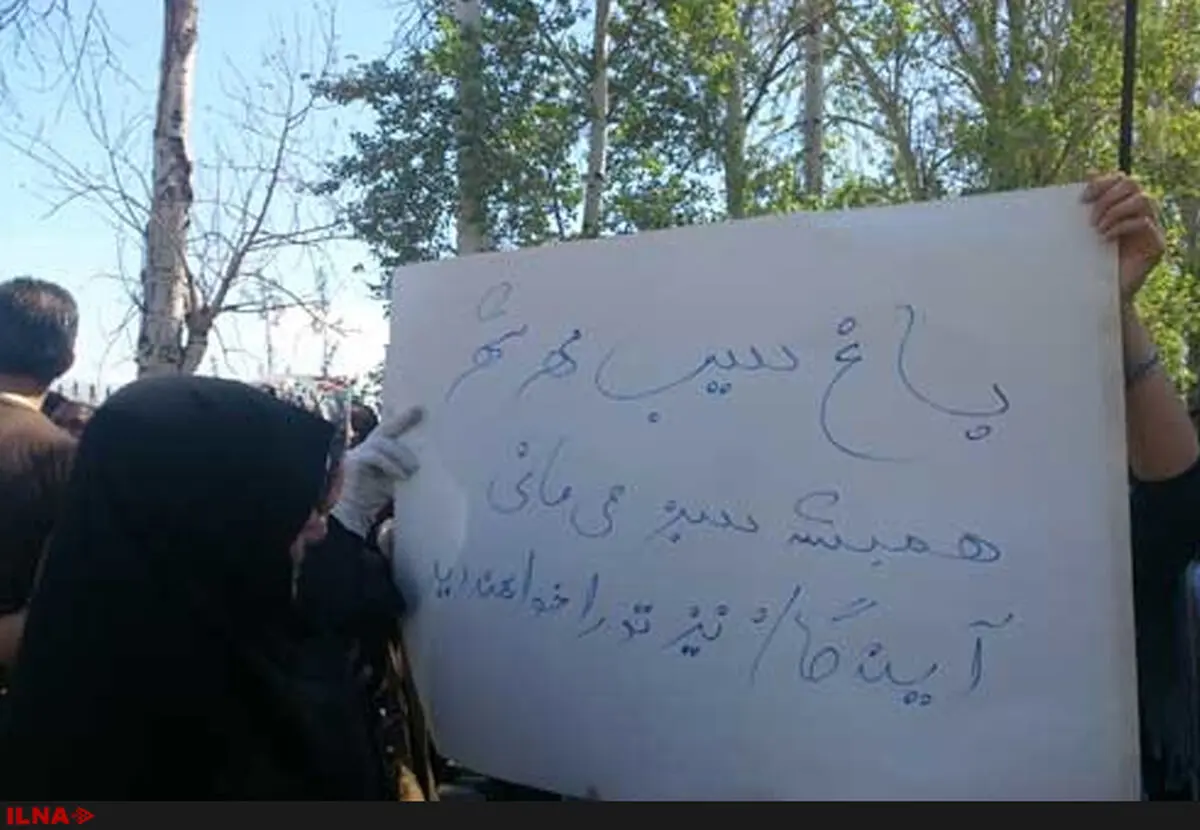 باغ سیب مهرشهر
همیشه سبز می مانی
آیندگان نیز تو را خواهند دید
ILNA